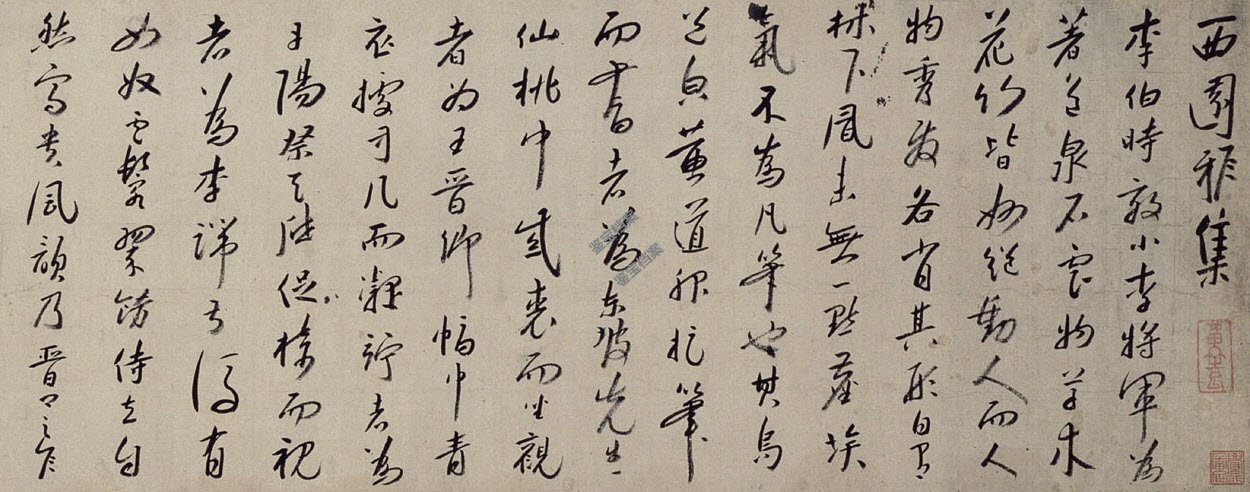 西園雅集
李伯時效小李將軍為
著色泉石雲物草木
花竹皆妙絕動人而人
物秀發各肖其形自有
林下風味無一點塵埃
氣不為凡筆也其烏
黃道服捉筆
而書者為東坡先生
仙桃巾紫裘而坐觀
者為王晉卿幅巾青
衣據方几而凝竚者為
丹陽蔡天啟捉椅而視
者為李端叔後有
女奴雲鬟翠飾侍立自
然富貴風韻乃晉卿之
鉴宝档案